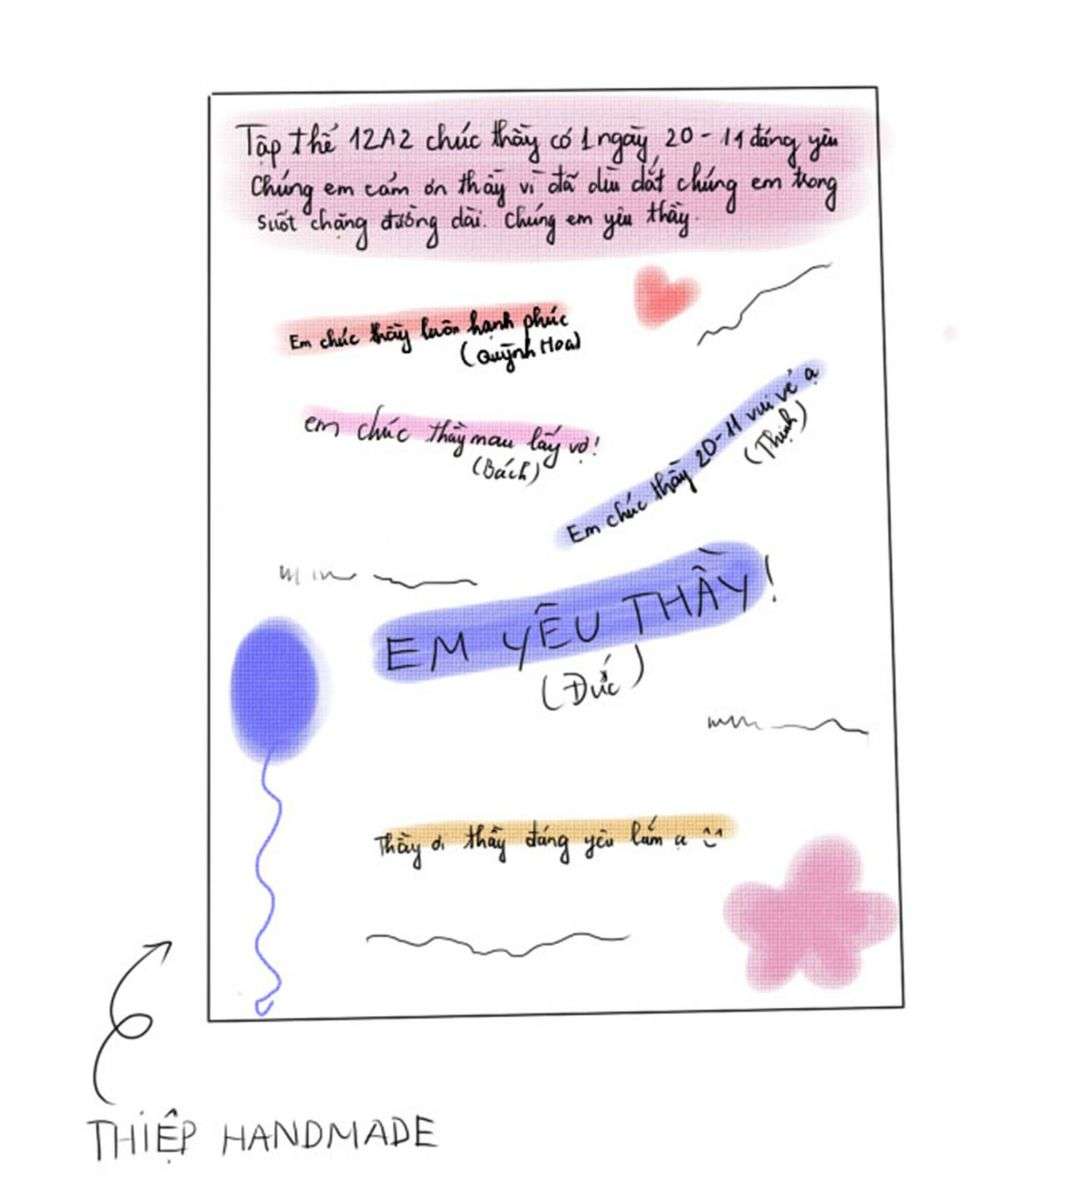 Tập thể 12A2 chúc thầy có 1 ngày 20-11 đáng yêu
Chúng em cám ơn thầy vì đã dìu dắt chúng em trong
suốt chặng đường dài. Chúng em yêu thầy.
Em chúc thầy luôn hạnh phúc
(Quỳnh Hoa)
em chúc thầy mau lấy vợ!
(Bách)
Em chúc thầy 20-11 vui vẻ ạ
(Thịnh)
EM YÊU THẦY!
(Đức)
Thầy ơi thầy đáng yêu lắm ạ ^^
THIỆP HANDMADE